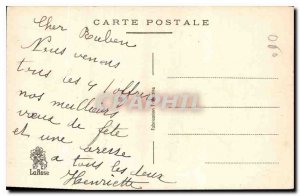 CARTE POSTALE
Cher Ruben
Nous venons
tous les 4 t'offrir
nos meilleurs
vœux de fête
et une
a tous les deux
Henriette
LaRose